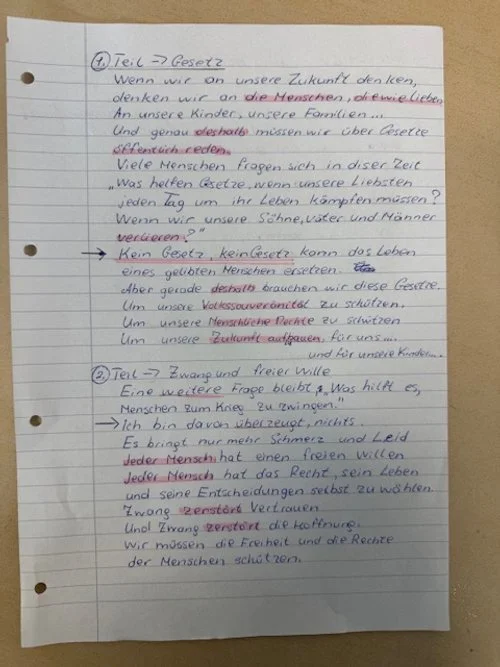 1. Teil → Gesetz
Wenn wir an unsere Zukunft denken,
denken wir an die Menschen, die wie lieben
An unsere Kinder, unsere Familien...
Und genau deshalb müssen wir über Gesetze
öffentlich reden.
Viele Menschen fragen sich in diser Zeit
„Was helfen Gesetze, wenn unsere Liebsten
jeden Tag um ihr Leben kämpfen müssen?
Wenn wir unsere Söhne, väter und Männer
verlieren?"
→ Kein Gesetz, kein Gesetz kann das Leben
eines gelibten Menschen ersetzen.
Aber gerade deshalb brauchen wir diese Gesetze.
Um unsere Volkssouveränität zu schützen.
Um unsere Menschliche Rechte zu schützen
Um unsere Zukunft aufbauen, für uns....
und für unsere Kinder....
2. Teil → Zwang und freier Wille
Eine weitere Frage bleibt, „Was hilft es,
Menschen zum Krieg zu zwingen."
→ Ich bin davon überzeugt, nichts.
Es bringt nur mehr Schmerz und Leid
Jeder Mensch hat einen freien Willen
Jeder Mensch hat das Recht, sein Leben
und seine Entscheidungen selbst zu wählen.
Zwang zerstört Vertrauen
Und Zwang zerstört die Hoffnung.
Wir müssen die Freiheit und die Rechte
der Menschen schützen.